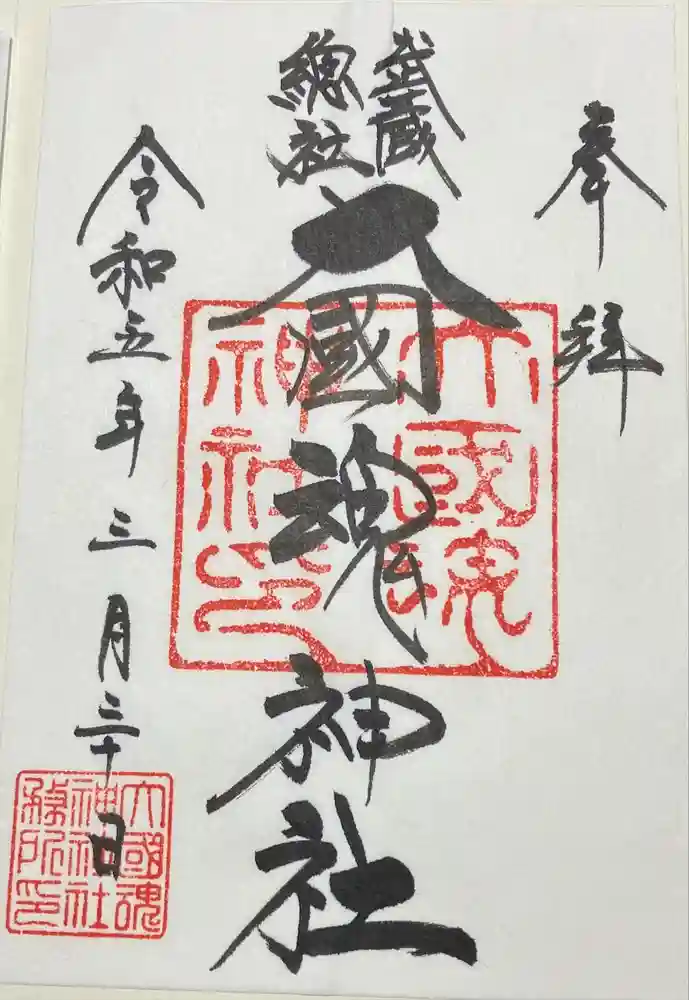 奉拝
武蔵
總社
大國魂神社
令和五年三月三十日
大國魂
神社印
大國魂
神社社
務所印